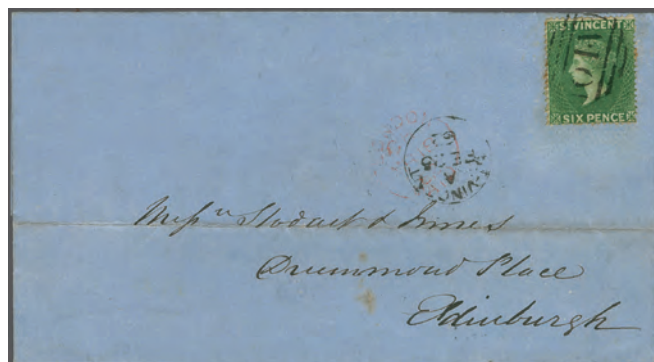 ST VINCENT
SIX PENCE
A10
ST. VINCENT
A
Mess.rs Stodart &
Drummond Place
Edinburgh